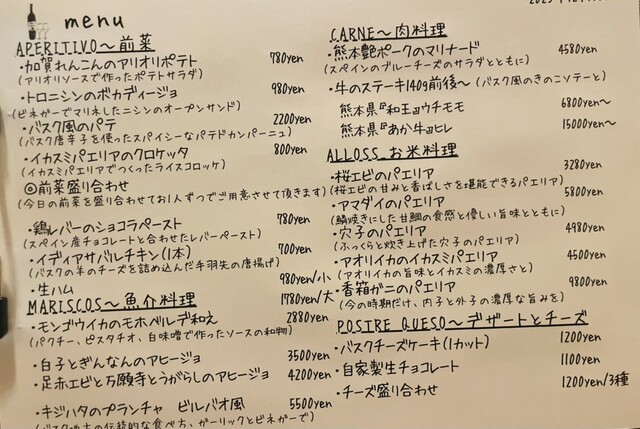 menu
APERITIVO～前菜
・加賀れんこんのアリオリポテト 780yen
(アリオリソースで作ったポテトサラダ)
・トロニシンのボカディージョ 980yen
(ビネガーでマリネしたニシンのオープンサンド)
・バスク風のパテ 2200yen
(バスク唐辛子を使ったスパイシーなパテドカンパーニュ)
・イカスミパエリアのクロケッタ 800yen
(イカスミパエリアでつくったライスコロッケ)
◎前菜盛り合わせ
(今日の前菜を盛り合わせてお1人ずつでご用意させて頂きます)
・鶏レバーのショコラペースト 780yen
(スペイン産チョコレートと合わせたレバーペースト)
・イディアサバルチキン(1本) 700yen
(バスクの羊のチーズを詰め込んだ手羽先の唐揚げ)
・生ハム 980yen/小
1780yen/大
MARISCOS～魚介料理
・モンゴウイカのモホベルデ和え 2880yen
(パクチー、ピスタチオ、白味噌で作ったソースの和物)
・白子とぎんなんのアヒージョ 3500yen
・足赤エビと万願寺とうがらしのアヒージョ 4200yen
・キジハタのプランチャ ビルバオ風 5500yen
CARNE～肉料理
・熊本艶ポークのマリナード 4580yen
(スペインのブルーチーズのサラダとともに)
・牛のステーキ140g前後～(バスク風のきのこソテーと)
熊本県『和王』ウチモモ 6800yen～
熊本県『あか牛』ヒレ 15000yen～
ALLOSS お米料理
・桜エビのパエリア 3280yen
(桜エビの甘みと香ばしさを堪能できるパエリア)
・アマダイのパエリア 5800yen
(鱗焼きにした甘鯛の食感と優しい旨味とともに)
・穴子のパエリア 4980yen
(ふっくらと炊き上げた穴子のパエリア)
・アオリイカのイカスミパエリア 4500yen
(アオリイカの旨味とイカスミの濃厚さと)
・香箱がニのパエリア 9800yen
(今の時期だけ、内子と外子の濃厚な旨みを)
POSTRE QUESO～デザートとチーズ
・バスクチーズケーキ(1カット) 1200yen
・自家製生チョコレート 1100yen
・チーズ盛り合わせ 1200yen/3種